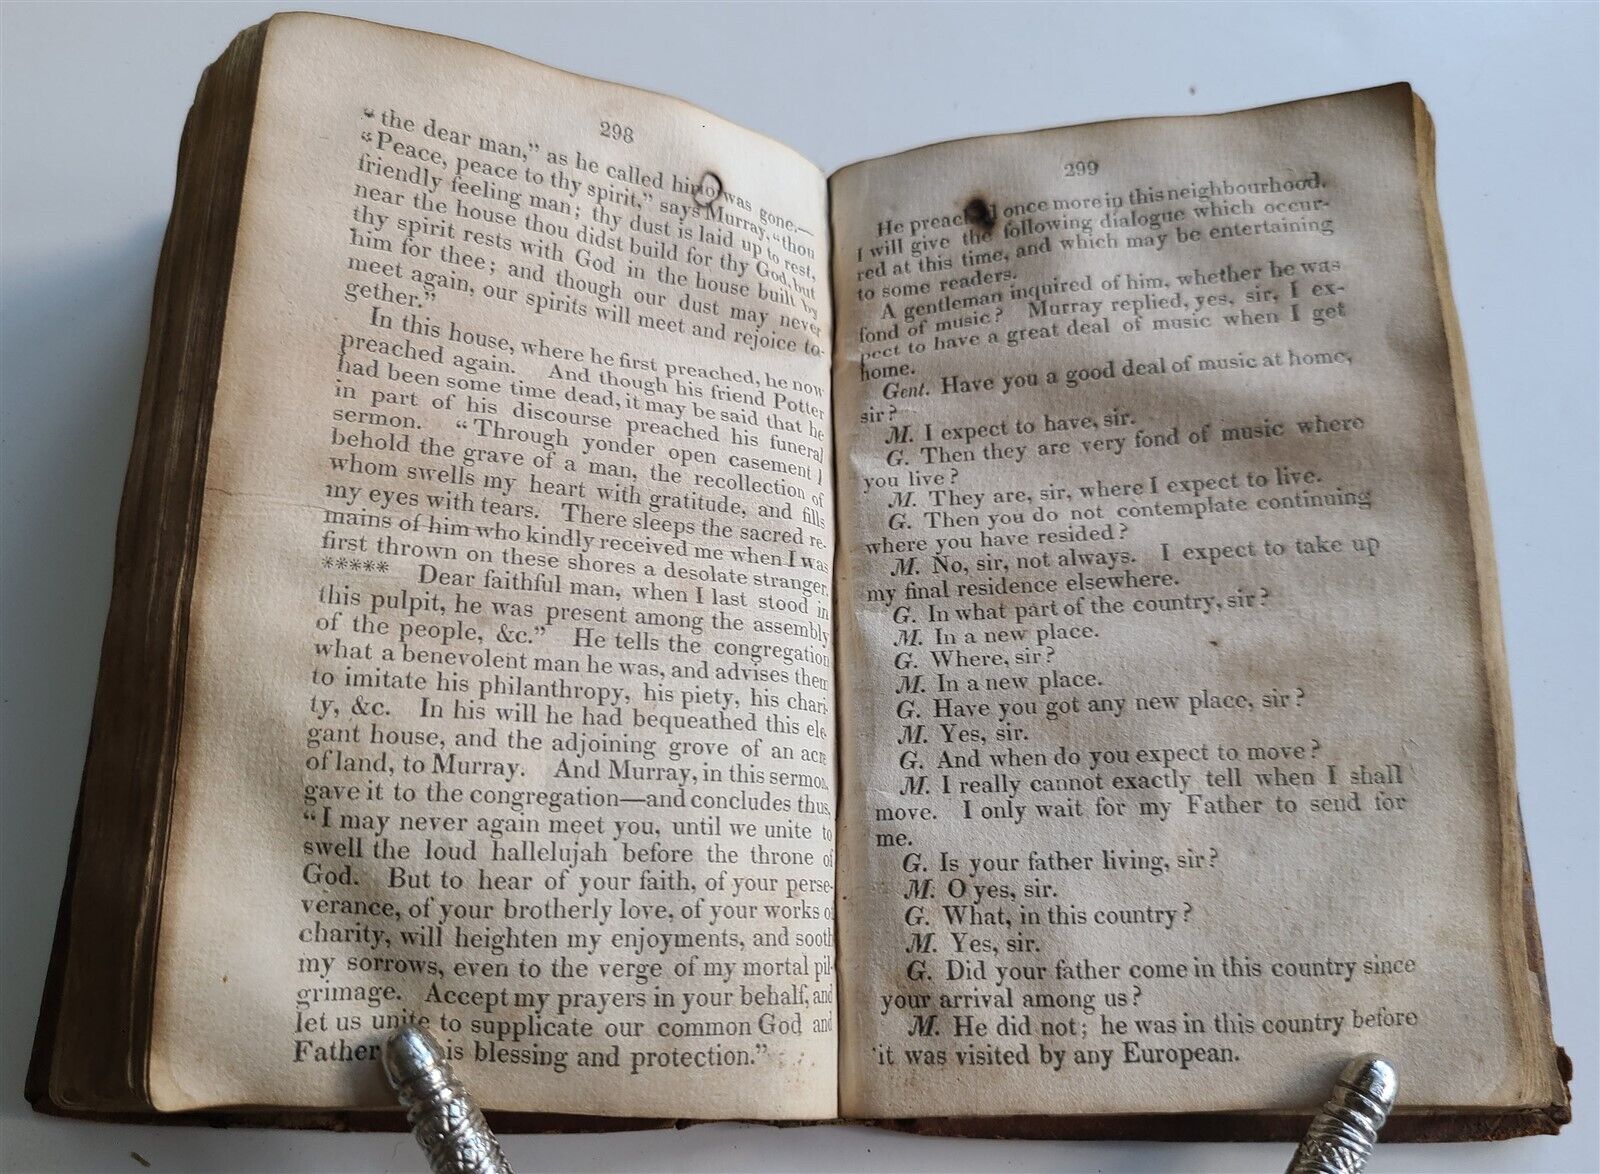 298
“the dear man,” as he called him was gone.—
“Peace, peace to thy spirit,” says Murray, “thou
friendly feeling man; thy dust is laid up to rest,
near the house thou didst build for thy God, but
thy spirit rests with God in the house built by
him for thee; and though our dust may never
meet again, our spirits will meet and rejoice to-
gether.”
In this house, where he first preached, he now
preached again. And though his friend Potter
had been some time dead, it may be said that he
in part of his discourse preached his funeral
sermon. “Through yonder open casement I
behold the grave of a man, the recollection of
whom swells my heart with gratitude, and fills
my eyes with tears. There sleeps the sacred re-
mains of him who kindly received me when I was
first thrown on these shores a desolate stranger.
***** Dear faithful man, when I last stood in
this pulpit, he was present among the assembly
of the people, &c.” He tells the congregation
what a benevolent man he was, and advises them
to imitate his philanthropy, his piety, his chari-
ty, &c. In his will he had bequeathed this ele-
gant house, and the adjoining grove of an acre
of land, to Murray. And Murray, in this sermon,
gave it to the congregation—and concludes thus,
“I may never again meet you, until we unite to
swell the loud hallelujah before the throne of
God. But to hear of your faith, of your perse-
verance, of your brotherly love, of your works of
charity, will heighten my enjoyments, and sooth
my sorrows, even to the verge of my mortal pil-
grimage. Accept my prayers in your behalf, and
let us unite to supplicate our common God and
Father is blessing and protection.”
299
He preached once more in this neighbourhood.
I will give the following dialogue which occur-
red at this time, and which may be entertaining
to some readers.
A gentleman inquired of him, whether he was
fond of music? Murray replied, yes, sir, I ex-
pect to have a great deal of music when I get
home.
Gent. Have you a good deal of music at home,
sir?
M. I expect to have, sir.
G. Then they are very fond of music where
you live?
M. They are, sir, where I expect to live.
G. Then you do not contemplate continuing
where you have resided?
M. No, sir, not always. I expect to take up
my final residence elsewhere.
G. In what part of the country, sir?
M. In a new place.
G. Where, sir?
M. In a new place.
G. Have you got any new place, sir?
M. Yes, sir.
G. And when do you expect to move?
M. I really cannot exactly tell when I shall
move. I only wait for my Father to send for
me.
G. Is your father living, sir?
M. O yes, sir.
G. What, in this country?
M. Yes, sir.
G. Did your father come in this country since
your arrival among us?
M. He did not; he was in this country before
it was visited by any European.